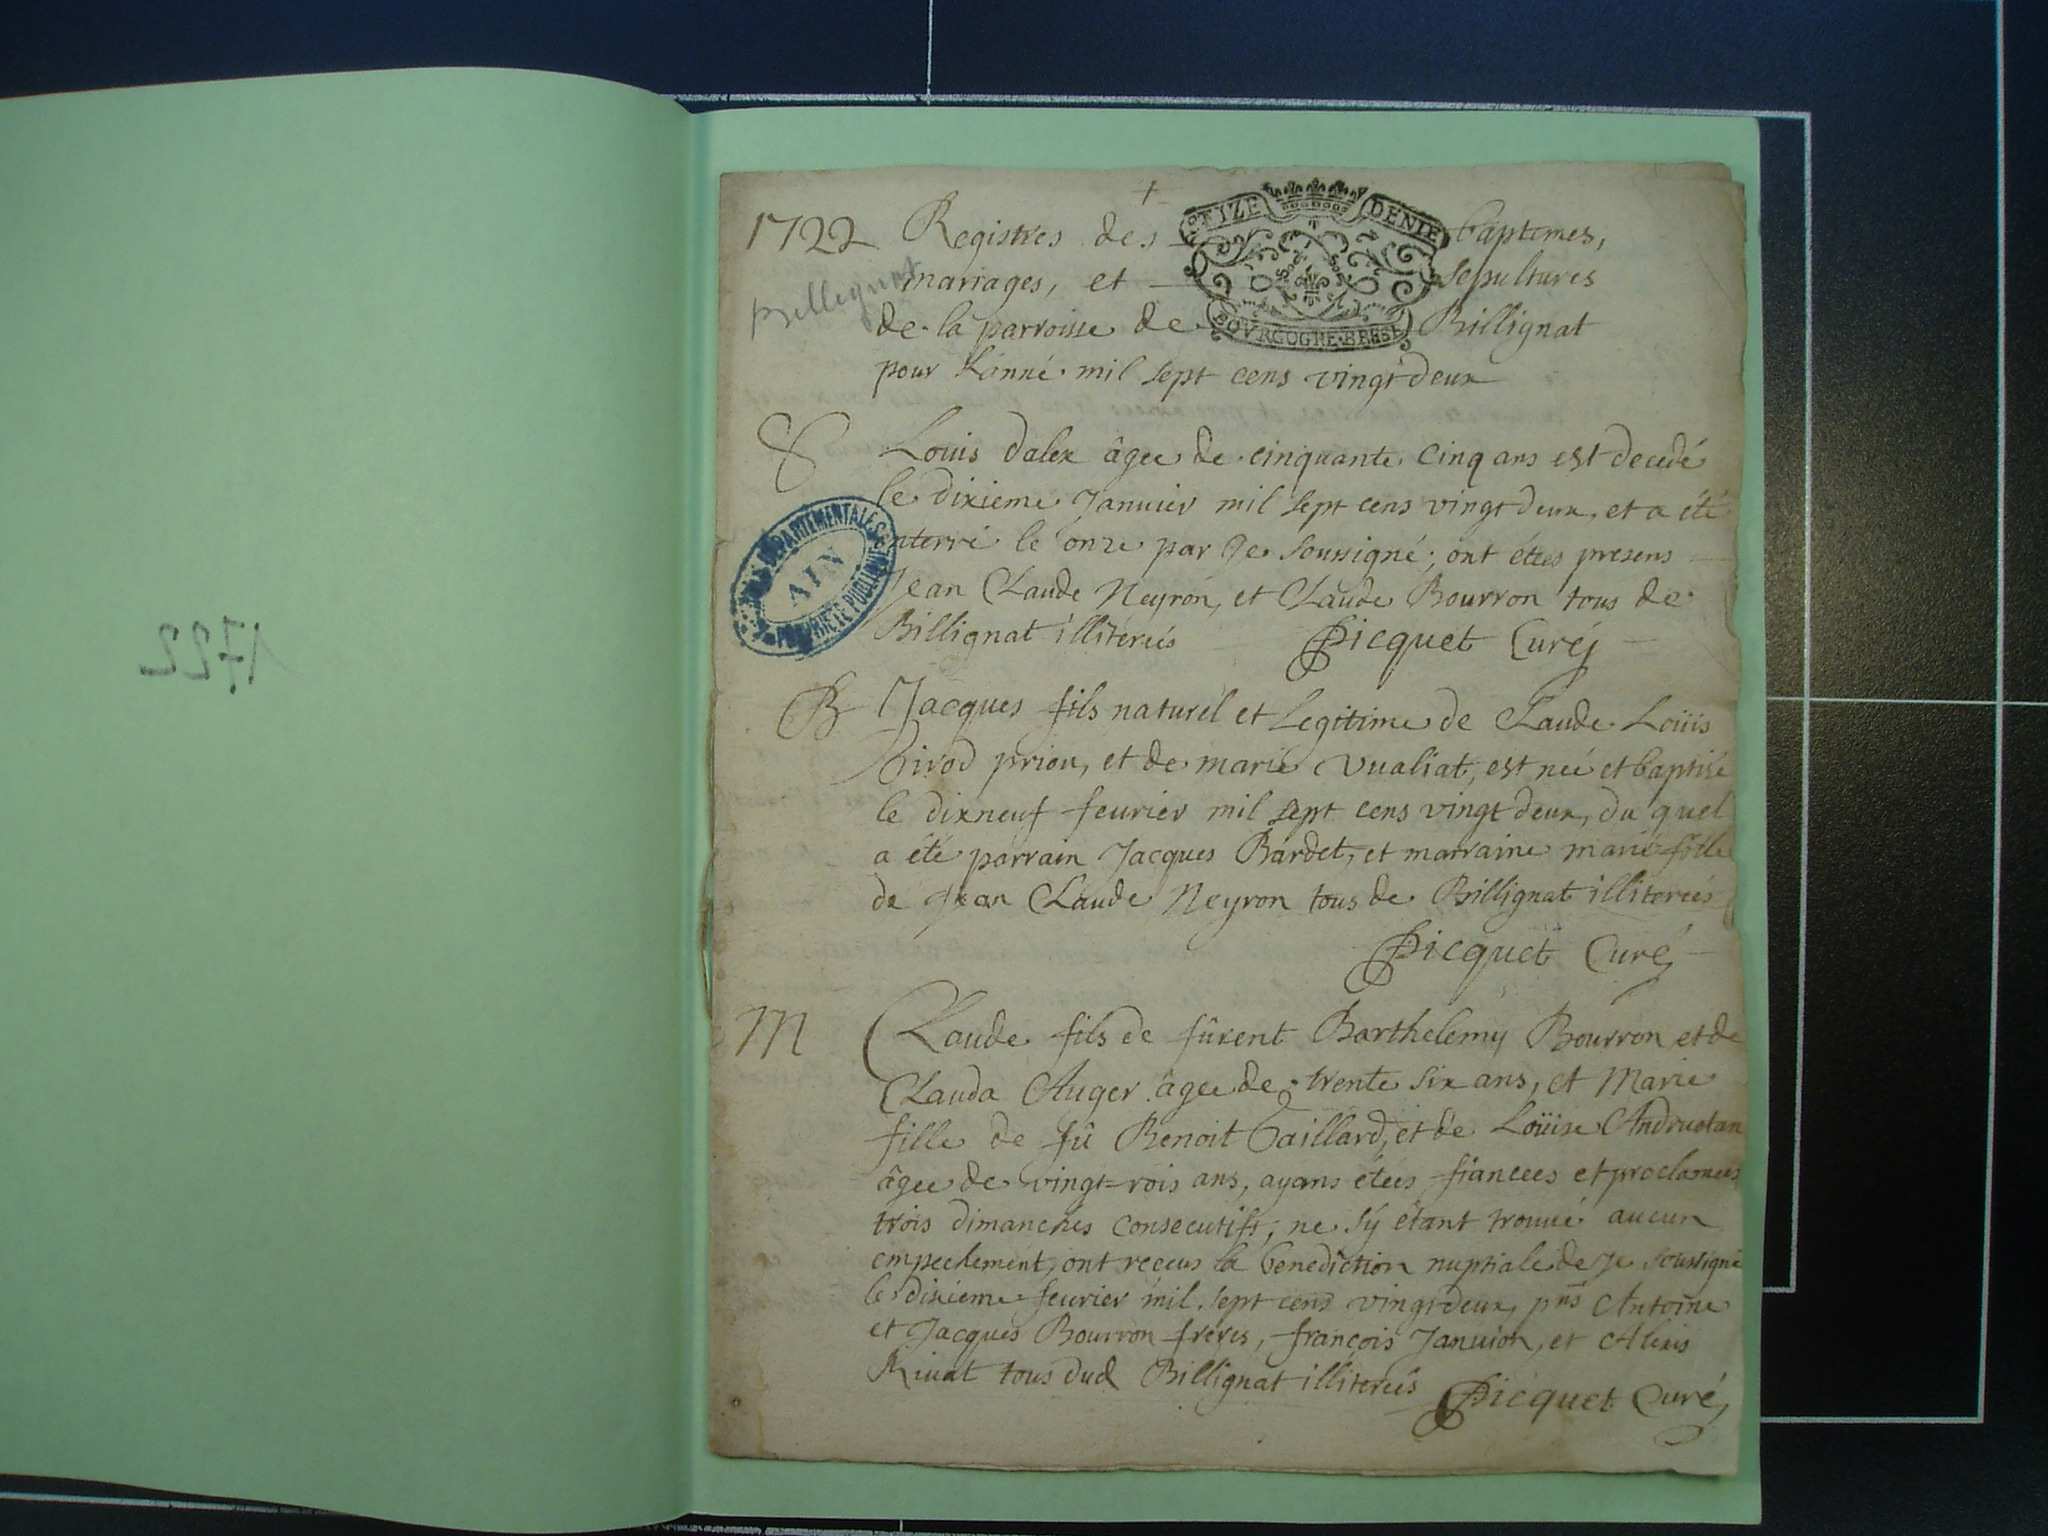 1722
+
1722 Registres des baptemes,
Bellignat
mariages, et sepultures
de la parroisse de Billignat
pour L'anné mil sept cens vingt deux
SEIZE DENIE
BOVRGOGNE BRESE
S Louis dalex âgee de cinquante cinq ans est decedé
le dixieme Januier mil sept cens vingt deux, et a été
enterré le onze par Je soussigné; ont étés presens
Jean Claude Neyron, et Claude Bourron tous de
Billignat illiterés Picquet Curé
DEPARTEMENTALES
AIN
PROPRIETE PUBLIQUE
B Jacques fils naturel et Legitime de Claude Loüis
Girod priou, et de marie Vualiat, est neé et baptisé
le dixneuf feurier mil sept cens vingt deux, du quel
a été parrain Jacques Bardet, et marraine marie fille
de Jean Claude Neyron tous de Billignat illiterés
Picquet Curé
M Claude fils de fûrent Barthelemy Bourron et de
Clauda Auger âgee de trente six ans, et Marie
fille de fû Benoit Gaillard, et de Loüise Andruetan
âgee de vingt=rois ans, ayans étées fiancees et proclamees
trois dimanches consecutifs, ne s'ÿ étant trouué aucun
empechement, ont receus la benediction nuptiale de Je soussigné
le dixieme feurier mil sept cens vingt deux, pns Antoine
et Jacques Bourron freres, françois Januion, et Alexis
Riuat tous dud Billignat illiterés Picquet Curé